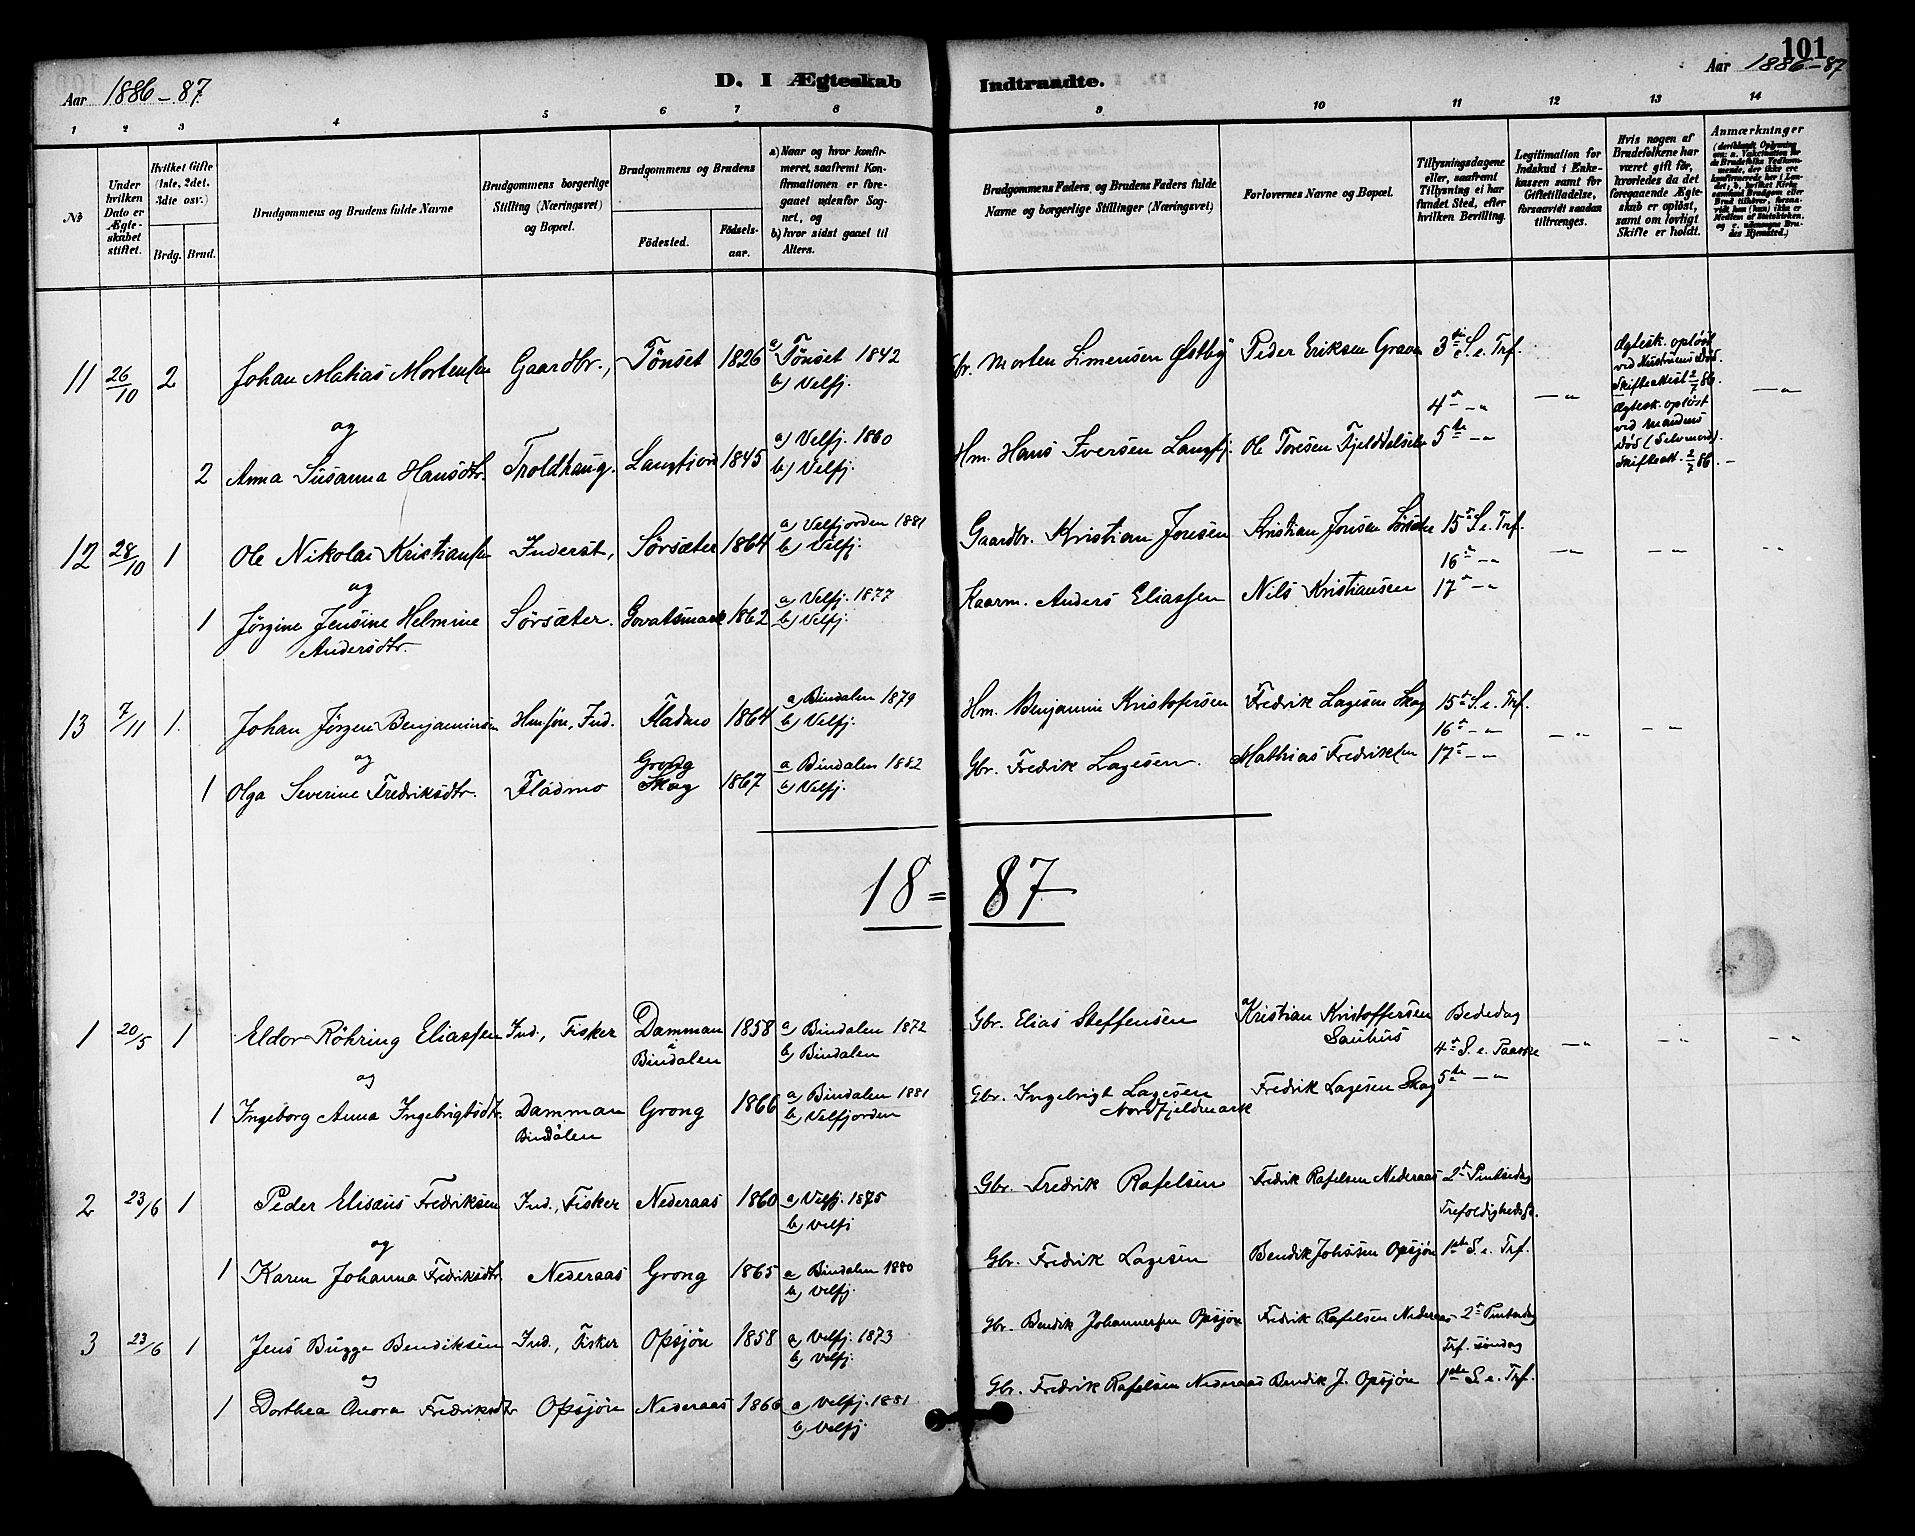 101
Aar 1886-87
D. I Ægteskab Indtraadte.
Aar 1886-87
1 2 3 4 5 6 7 8 9 10 11 12 13 14
No
Under hvilken Dato er Ægteskabet stiftet.
Hvilket Gifte (1ste, 2det. 3die osv.)
Brdg. Brud.
Brudgommens og Brudens fulde Navne
Brudgommens borgerlige Stilling (Næringsvei) og Bopæl.
Brudgommens og Brudens
Födested.
Födselsaar.
a) Naar og hvor konfirmeret, saafremt Konfirmationen er foregaaet udenfor Sognet, og
b) hvor sidst gaaet til Alters.
Brudgommens Faders, og Brudens Faders fulde Navne og borgerlige Stillinger (Næringsvei)
Forlovernes Navne og Bopæl.
Tillysningsdagene eller, saafremt Tillysning ei har fundet Sted, efter hvilken Bevilling.
Legitimation for Indskud i Enkekassen samt for Giftetilladelse, forsaavidt saadan tiltrænges.
Hvis nogen af Brudefolkene har været gift før, hvorledes da det foregaaende Ægteskab er opløst, samt om lovligt Skifte er holdt.
Anmærkninger
11 26/10 2 Johan Matias Mortensen Gaardbr., Tönset 1826 a) Tönset 1842 b) Velfj. Gbr. Morten Simensen Østby Peder Eriksen Graven 3die S. e. Trf.
4de -"- -"- -"-
Ægtesk. opløst ved Hustruens Død. Skifteattest 2/7 86.
og
2 Anna Susanna Hansdtr. Troldhaug. Langfjord 1845 a) Velfj. 1860 b) Velfj. Hm. Hans Iversen Langfj. Ole Toresen Fjelddalselv 5te -"-
Ægtesk. opløst ved Mandens Død (Selvmord). Skifteatt. 2/7 86. -
12 28/10 1 Ole Nikolai Kristiansen Inderst, Sörsæter 1864 a) Velfjorden 1881 b) Velfj. Gaardbr. Kristian Jonsen Kristian Jonsen Sörsæter 15de S. e. Trf.
16de -"- -"- -"- -"-
og
1 Jørgine Jensine Helmine Andersdtr. Sörsæter. Govatsmark 1862 a) Velfj. 1877 b) Velfj. Kaarm. Anders Eliassen Nils Kristiansen 17de -"-
13 7/11 1. Johan Jörgen Benjaminsen Hmsøn, Ind. Fladmo 1864 a) Bindalen 1879 b) Velfj. Hm. Benjamin Kristofersen Fredrik Lagesen Skog 15de S. e. Trf.
16de -"- -"- -"-
og
1 Olga Severine Fredriksdtr. Fladmo Grong Skog 1867 a) Bindalen 1882 b) Velfj. Gbr. Fredrik Lagesen. Mathias Fredriksen 17de -"-
18=87
1 20/5 1 Eldor Röhring Eliassen Ind., Fisker Damman i Bindalen 1858 a) Bindalen 1872 b) Bindalen Gbr. Elias Steffensen Kristian Kristoffersen Sauhus Bededag
4de S. e. Paaske -"- -"- -"-
og
1 Ingeborg Anna Ingebrigtsdtr. Damman Bindalen Grong 1866 a) Bindalen 1881 b) Velfjorden Gbr. Ingebrigt Lagesen Nordfjeldmark Fredrik Lagesen Skog 5te -"-
2 23/6 1 Peder Elisæus Fredriksen Ind., Fisker Nederaas 1860 a) Velfj. 1875 b) Velfj Gbr. Fredrik Rafelsen Fredrik Rafelsen Nederaas 2den Pintsedag
Trefoldighedsd.
og
1 Karen Johanna Fredriksdtr. Nederaas Grong 1865 a) Bindalen 1880 b) Velfj. Gbr. Fredrik Lagesen Bendik Johnsen Opsjön 1ste S. e. Trf.
3 23/6 1 Jens Bugge Bendiksen Ind., Fisker Opsjön 1858 a) Velfj. 1873 b) Velfj. Gbr. Bendik Johannesen Opsjön Fredrik Rafelsen Nederaas 2den Pintsedag
Trf. söndag
og
1 Dorthea Anora Fredriksdtr Opsjön Nederaas 1866 a) Velfj. 1881 b) Velfj Gbr. Fredrik Rafelsen Nederaas Bendik J. Opsjön 1ste S. e. Trf.